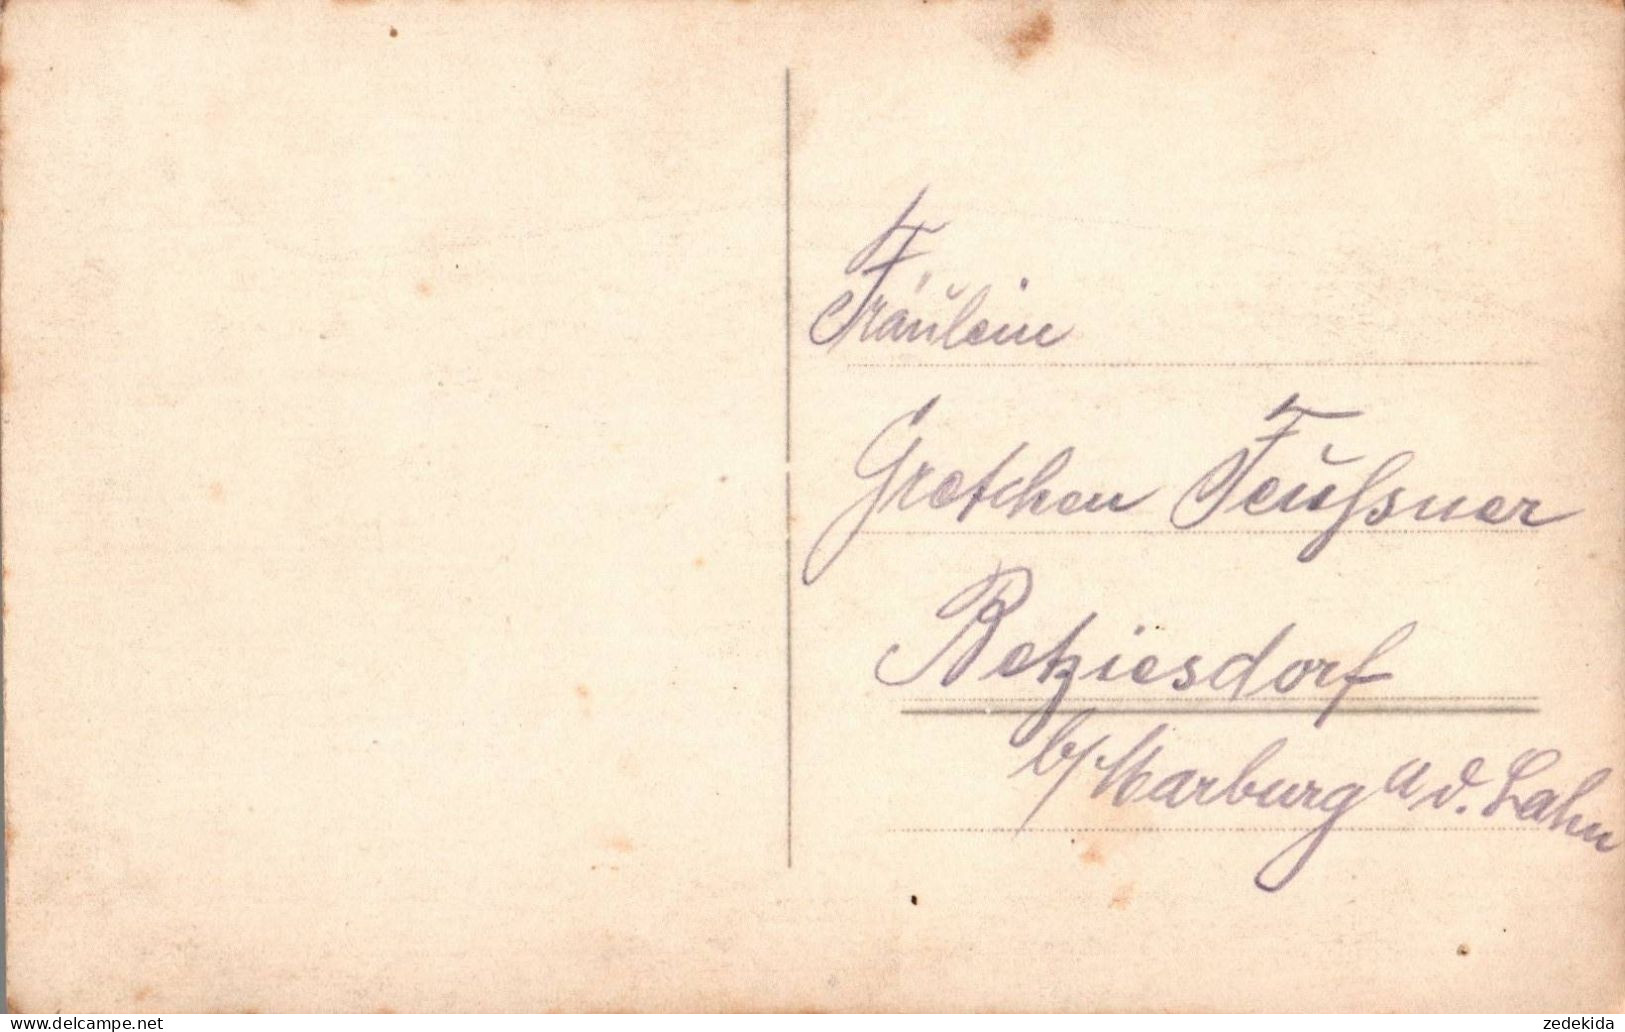 Fräulein
Gretchen Feußner
Betziesdorf
b/Marburg a d. Lahn
www.delcampe.net
zedekida